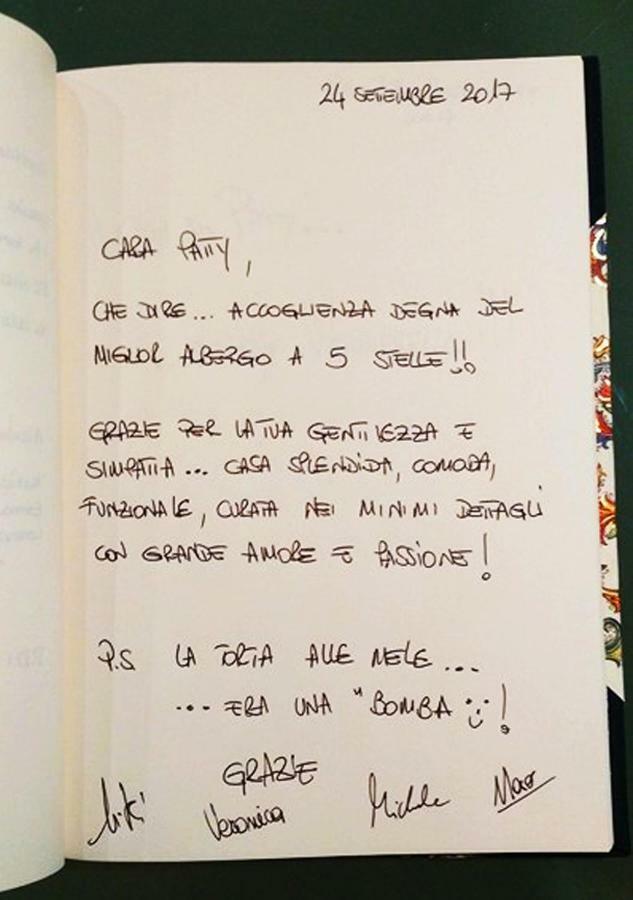 24 SETTEMBRE 2017
CARA PATTY,
CHE DIRE... ACCOGLIENZA DEGNA DEL
MIGLIOR ALBERGO A 5 STELLE!!
GRAZIE PER LA TUA GENTILEZZA E
SIMPATIA... CASA SPLENDIDA, COMODA,
FUNZIONALE, CURATA NEI MINIMI DETTAGLI
CON GRANDE AMORE E PASSIONE!
P.S LA TORTA ALLE MELE...
... ERA UNA "BOMBA"!
GRAZIE
Veronica Michele